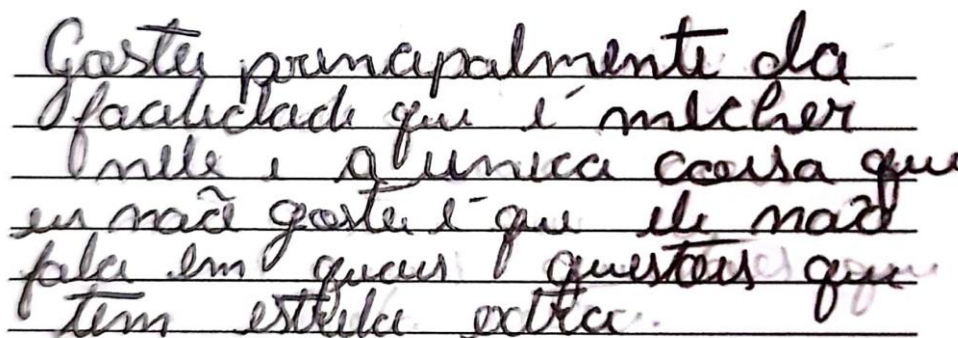 Gostei principalmente da
facilidade que é mecher
nele e a unica coisa que
eu não gostei é que ele não
fala em quais questões que
tem estrela extra.